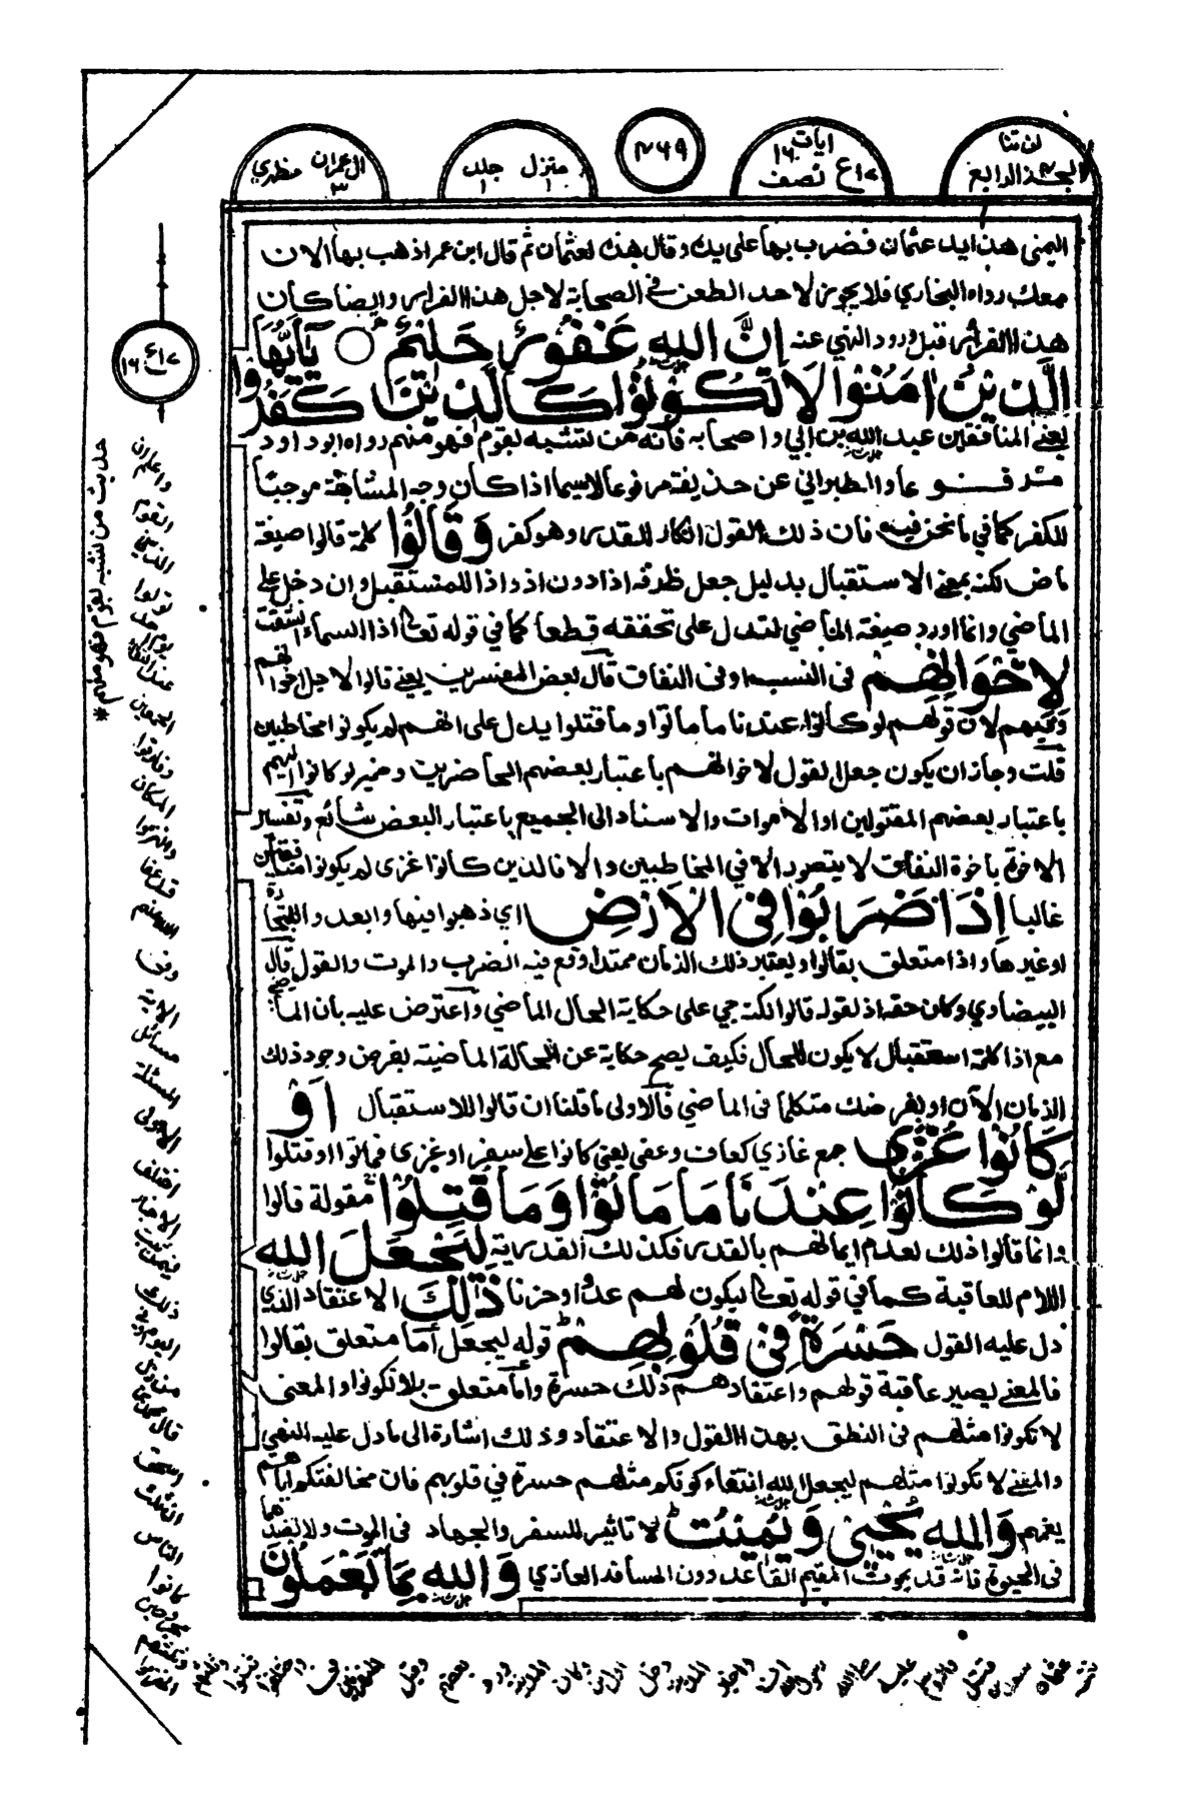 لن تنا
الجزء الرابع
ايات ١٦
ع١٧ نصف
٤٦٩
منزل ١ جلد ١
ال عمران ٣ مظهري
اليمنى هذه يد عثمان فضرب بها على يده وقال هذه لعثمان ثم قال ابن عمر اذهب بها الان
معك رواه البخاري فلا يجوز لاحد الطعن في الصحابة لاجل هذا الفرار وايضا كان
هذا الفرار قبل ورود النهي عنه اِنَّ اللهَ غَفُوْرٌ حَلِيْمٌ يٰٓاَيُّهَا
الَّذِيْنَ اٰمَنُوْا لَا تَكُوْنُوْا كَالَّذِيْنَ كَفَرُوْا
يعني المنافقين عبد الله بن ابي واصحابه فانه من تشبه بقوم فهو منهم رواه ابو داود
عن حذيفة مرفوعا لاسيما اذا كان وجه المشابهة موجبا
للكفر كما في ما نحن فيه فان ذلك القول انكار للقدر وهو كفر وَقَالُوْا كلمة قالوا صيغة
ماض لكنه بمعنى الاستقبال بدليل جعل ظرفه اذا دون اذ واذا للمستقبل وان دخل على
الماضي وانما اورد صيغة الماضي لتدل على تحققه قطعا كما في قوله تعالى اذا السماء انشقت
لِاِخْوَانِهِمْ في النسب او في النفاق قال بعض المفسرين يعني قالوا لاجل اخوانهم
وفيهم لان قولهم لو كانوا عندنا ما ماتوا وما قتلوا يدل على انهم لم يكونوا مخاطبين
قلت وجاز ان يكون جعل القول لاخوانهم باعتبار بعضهم الحاضرين وضمير لو كانوا اليهم
باعتبار بعضهم المقتولين او الاموات والاسناد الى الجميع باعتبار البعض شائع وتفسير
الاخوة باخوة النفاق لا يتصور الا في المخاطبين والا فالذين كانوا غزى لم يكونوا منافقين
غالبا اِذَا ضَرَبُوْا فِى الْاَرْضِ اي ذهبوا فيها وابعدوا للتجارة
او غيرها واذا متعلق بقالوا ويعتبر ذلك الزمان ممتدا وقع فيه الضرب والموت والقول قال
البيضاوي وكان حقه اذ لقوله قالوا لكنه جيء على حكاية الحال الماضي واعترض عليه بان الماضي
مع اذا كلمة استقبال لا يكون للحال فكيف يصح حكاية عن الحالة الماضية بفرض وجود ذلك
الزمان الآن او بفرضك متكلما في الماضي فالاولى ما قلنا ان قالوا للاستقبال اَوْ
كَانُوْا غُزًّى جمع غازي كعاف وعفي يعني كانوا على سفر او غزى فماتوا او قتلوا
لَوْ كَانُوْا عِنْدَنَا مَا مَاتُوْا وَمَا قُتِلُوْا مقولة قالوا
وانما قالوا ذلك لعدم ايمانهم بالقدر فكذلك القدرية لِيَجْعَلَ اللهُ
اللام للعاقبة كما في قوله تعالى ليكون لهم عدوا وحزنا ذٰلِكَ الاعتقاد الذي
دل عليه القول حَسْرَةً فِىْ قُلُوْبِهِمْ قوله ليجعل اما متعلق بقالوا
فالمعنى يصير عاقبة قولهم واعتقادهم ذلك حسرة واما متعلق بلا تكونوا والمعنى
لا تكونوا مثلهم في النطق بهذا القول والاعتقاد وذلك اشارة الى ما دل عليه النهي
والمعنى لا تكونوا مثلهم ليجعل الله انتفاء كونكم مثلهم حسرة في قلوبهم فان مخالفتكم اياهم
يغمهم وَاللهُ يُحْيٖ وَيُمِيْتُ لا تاثير للسفر والجهاد في الموت ولا لفقدهما
في الحيوة فانه قد يموت المقيم القاعد دون المسافر الغازي وَاللهُ بِمَا تَعْمَلُوْنَ
ع١٧ ١٦
حديث من تشبه بقوم فهو منهم *